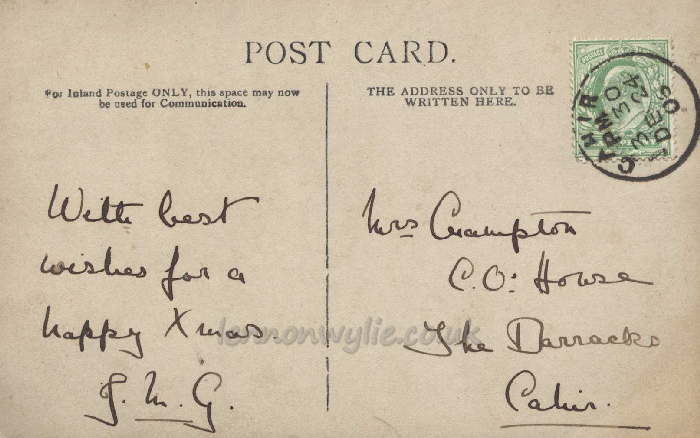 POST CARD.
For Inland Postage ONLY, this space may now
be used for Communication.
THE ADDRESS ONLY TO BE
WRITTEN HERE.
With best
wishes for a
happy Xmas.
J. M. G.
Mrs Crampton
C.O: House
The Barracks
Cahir.
lennonwylie.co.uk
POSTAGE
CAHIR
DE 24